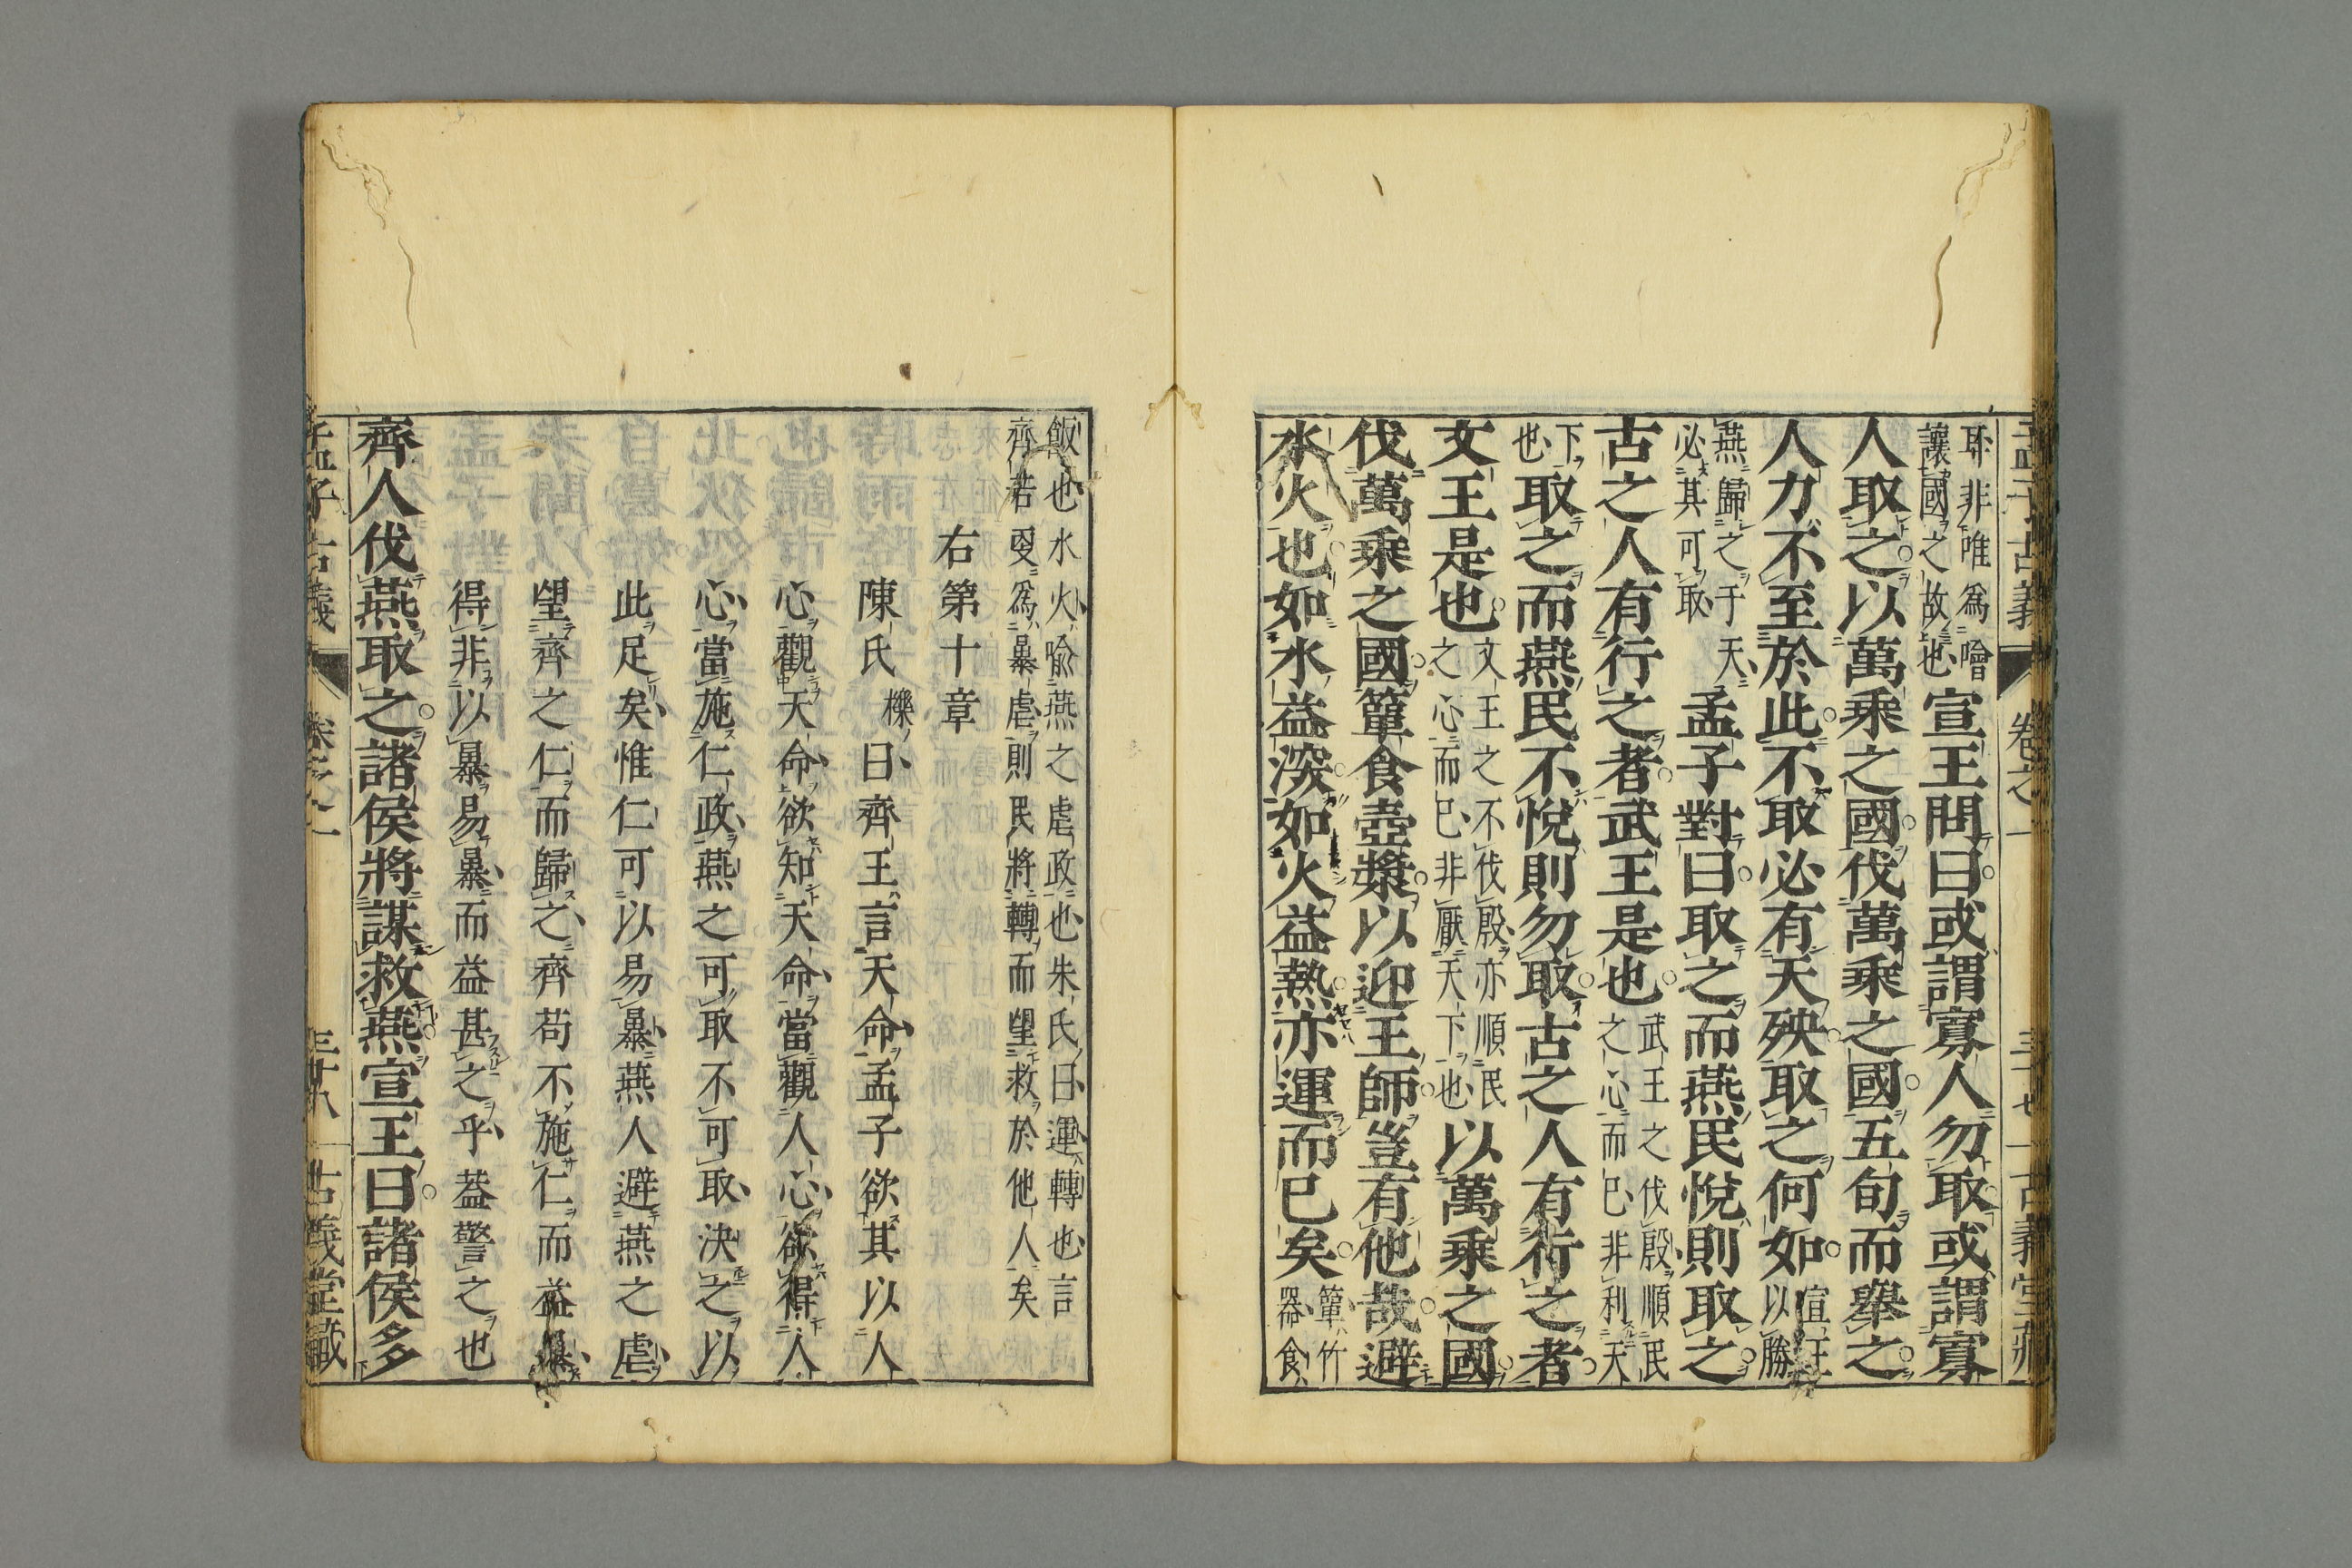 孟子古義 卷之一 三十七 古義堂藏
耳非唯爲噲
讓國之故也
宣王問曰或謂寡人勿取或謂寡
人取之以萬乘之國伐萬乘之國五旬而舉之
人力不至於此不取必有天殃取之何如
宣王
以勝
燕歸之于天
必其可取
孟子對曰取之而燕民悅則取之
古之人有行之者武王是也
武王之伐殷順民
之心而已非利天
下
也
取之而燕民不悅則勿取古之人有行之者
文王是也
文王之不伐殷亦順民
之心而已非厭天下也
以萬乘之國
伐萬乘之國簞食壺漿以迎王師豈有他哉避
水火也如水益深如火益熱亦運而已矣
簞竹
器食
飯也水火喩燕之虐政也朱氏曰運轉也言
齊若更爲暴虐則民將轉而望救於他人矣
右第十章
陳氏櫟曰齊王言天命孟子欲其以人
心觀天命欲知天命當觀人心欲得人
心當施仁政燕之可取不可取決之以
此足矣惟仁可以易暴燕人避燕之虐
望齊之仁而歸之齊苟不施仁而益暴
得非以暴易暴而益甚之乎葢警之也
齊人伐燕取之諸侯將謀救燕宣王曰諸侯多
孟子古義 卷之一 三十八 古義堂藏